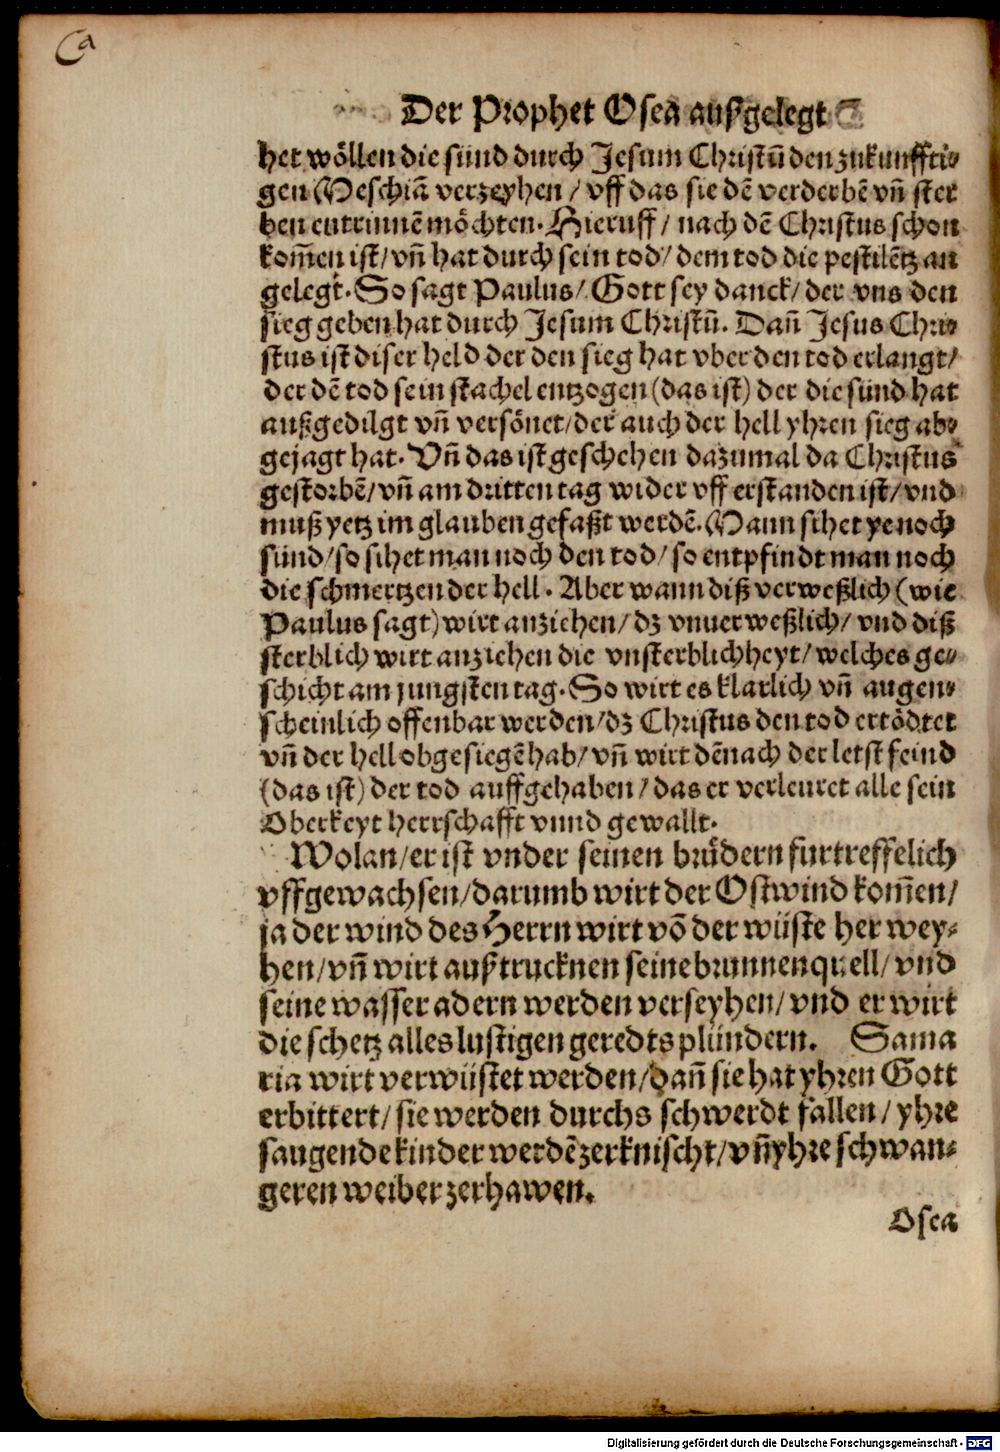 Der Prophet Osea außgelegt
het wöllen die sünd durch Jesum Christū den zukunffti⸗
gen Meschiā verzeyhen / vff das sie dē verderbē vn̄ ster
ben entrinnē möchten. Hieruff / nach dē Christus schon
kom̄en ist/ vn̄ hat durch sein tod/ dem tod die pestilētz an
gelegt. So sagt Paulus/ Gott sey danck/ der vns den
sieg geben hat durch Jesum Christū. Dan̄ Jesus Chri⸗
stus ist diser held der den sieg hat vber den tod erlangt/
der dē tod sein stachel entzogen (das ist) der die sünd hat
außgedilgt vn̄ versönet/ der auch der hell yhren sieg ab⸗
gejagt hat. Vn̄ das ist geschehen dazumal da Christus
gestorbē/ vn̄ am dritten tag wider vff erstanden ist/ vnd
muß yetz im glauben gefaßt werdē. Mann sihet ye noch
sünd/ so sihet man noch den tod/ so entpfindt man noch
die schmertzen der hell. Aber wann diß verweßlich (wie
Paulus sagt) wirt anziehen/ dz vnuerweßlich/ vnd diß
sterblich wirt anziehen die vnsterblichheyt/ welches ge⸗
schicht am jungsten tag. So wirt es klarlich vn̄ augen⸗
scheinlich offenbar werden/ dz Christus den tod ertödtet
vn̄ der hell obgesiegē hab/ vn̄ wirt dēnach der letst feind
(das ist) der tod auffgehaben/ das er verleuret alle sein
Oberkeyt herrschafft vnnd gewallt.
Wolan/ er ist vnder seinen brüdern furtreffelich
vffgewachsen/ darumb wirt der Ostwind kom̄en/
ja der wind des Herrn wirt vō der wüste her wey⸗
hen/ vn̄ wirt außtrucknen seine brunnenquell/ vnd
seine wasser adern werden verseyhen/ vnd er wirt
die schetz alles lustigen geredts plündern. Sama
ria wirt verwüstet werden/ dan̄ sie hat yhren Gott
erbittert/ sie werden durchs schwerdt fallen/ yhre
saugende kinder werdē zerknischt/ vn̄ yhre schwan⸗
geren weiber zerhawen.
Osea
Digitalisierung gefördert durch die Deutsche Forschungsgemeinschaft - DFG